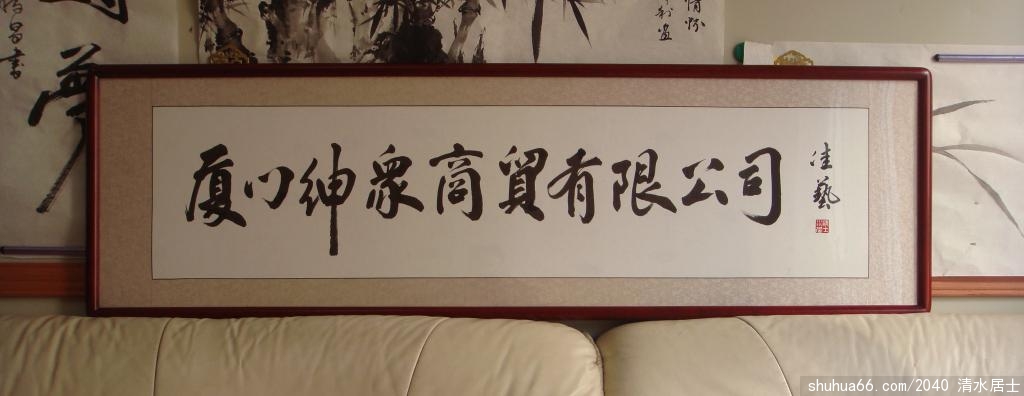 厦门绅衆商貿有限公司
佳藝
情怀
昌書
shuhua66.com/2040 清水居士